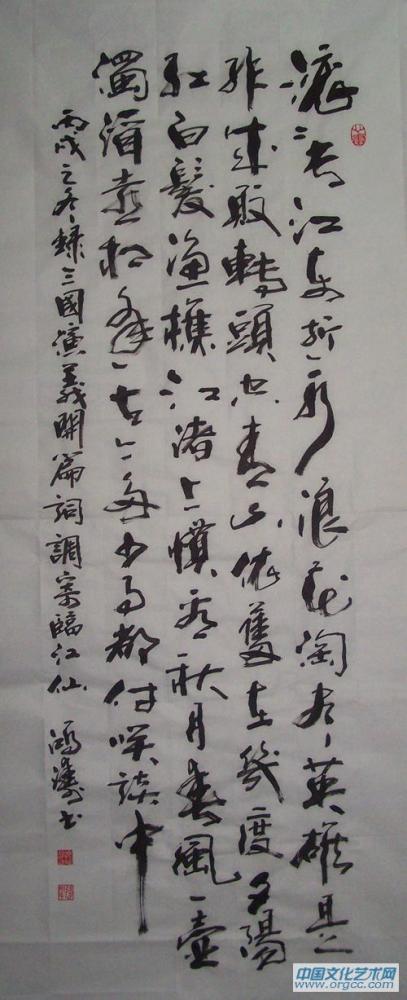 滚滚长江东逝水浪花淘尽英雄是
非成败转头空青山依旧在几度夕阳
红白髮渔樵江渚上惯看秋月春風一壶
濁酒喜相逢古今多少事都付笑談中
丙戌之冬錄三國演義開篇詞調寄臨江仙 鴻濤书
中国文化艺术网
www.orgcc.com